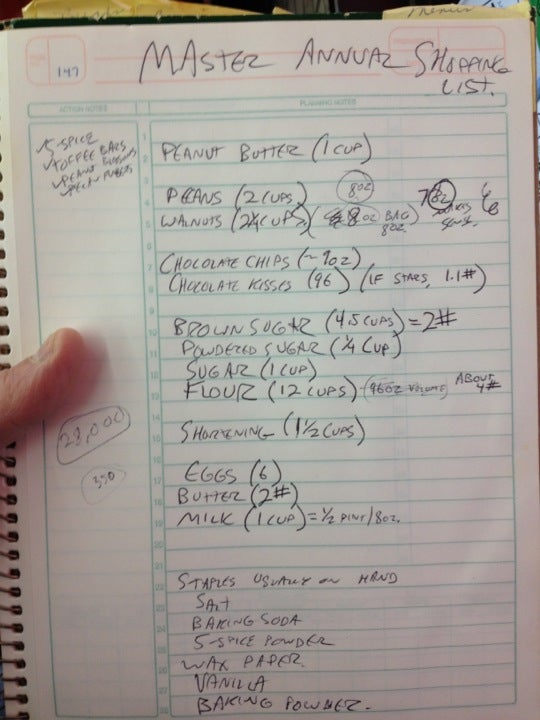 Menus
147
MASTER ANNUAL SHOPPING
LIST.
ACTION NOTES
PLANNING NOTES
5-SPICE
TOFFEE BARS
PEANUT BLOSSOMS
PECAN PUFFETS
PEANUT BUTTER (1 CUP)
PECANS (2 CUPS) 8OZ
WALNUTS (2 1/4 CUPS) 8OZ BAG
8OZ.
CHOCOLATE CHIPS (~9OZ)
CHOCOLATE KISSES (96) (IF STARS, 1.1#)
BROWN SUGAR (4.5 CUPS) = 2#
POWDERED SUGAR (1/4 CUP)
SUGAR (1 CUP)
FLOUR (12 CUPS) - (96OZ VOLUME) ABOUT
4#
SHORTENING (1 1/2 CUPS)
EGGS (6)
BUTTER (2#)
MILK (1 CUP) = 1/2 PINT/8OZ.
28,000
330
STAPLES USUALLY ON HAND
SALT
BAKING SODA
5-SPICE POWDER
WAX PAPER.
VANILLA
BAKING POWDER.